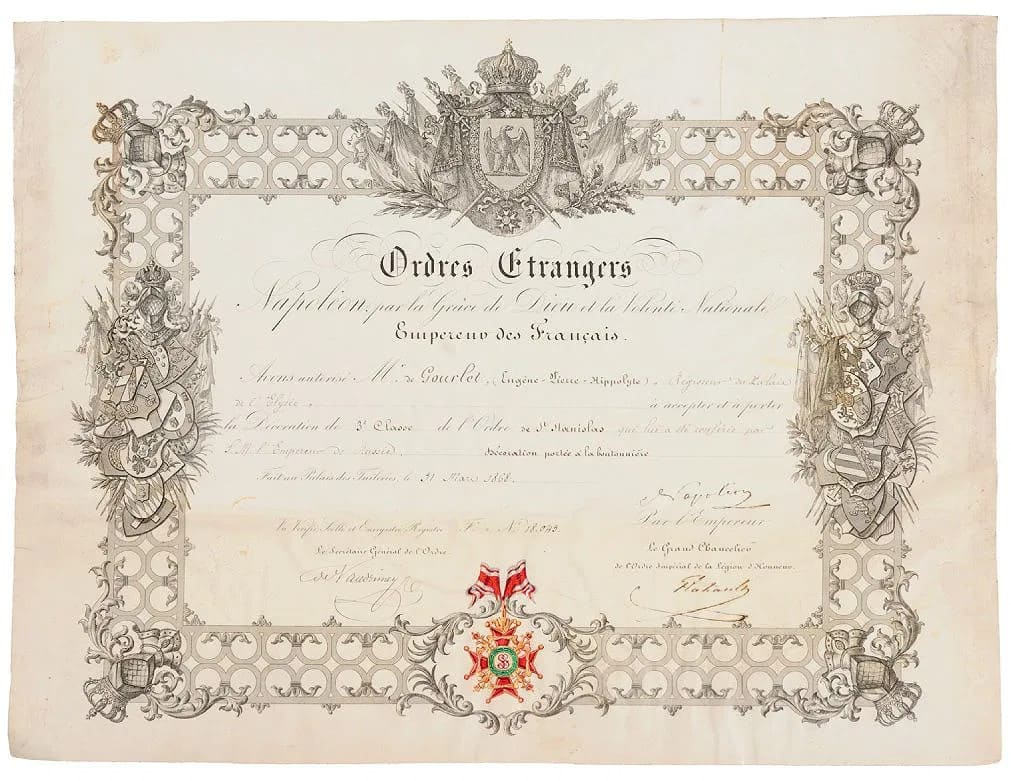 Ordres Etrangers
Napoléon, par la Grâce de Dieu et la Volonté Nationale
Empereur des Français.
Avons autorisé Mr. de Gourlet, (Eugène-Pierre-Hippolyte), Régisseur du Palais
de l'Elysée, à accepter et à porter
la Décoration de 3e Classe de l'Ordre de St Stanislas qui lui a été conférée par
S.M. l'Empereur de Russie. Décoration portée à la boutonnière
Fait au Palais des Tuileries, le 31 Mars 1868.
Napoléon
Vu, Vérifié, Scellé et Enregistré, Registre F. No 18,043.
Par l'Empereur
Le Secrétaire Général de l'Ordre
Le Grand Chancelier
de l'Ordre Impérial de la Légion d'Honneur.
de Vaudrimey
Flahault
SS